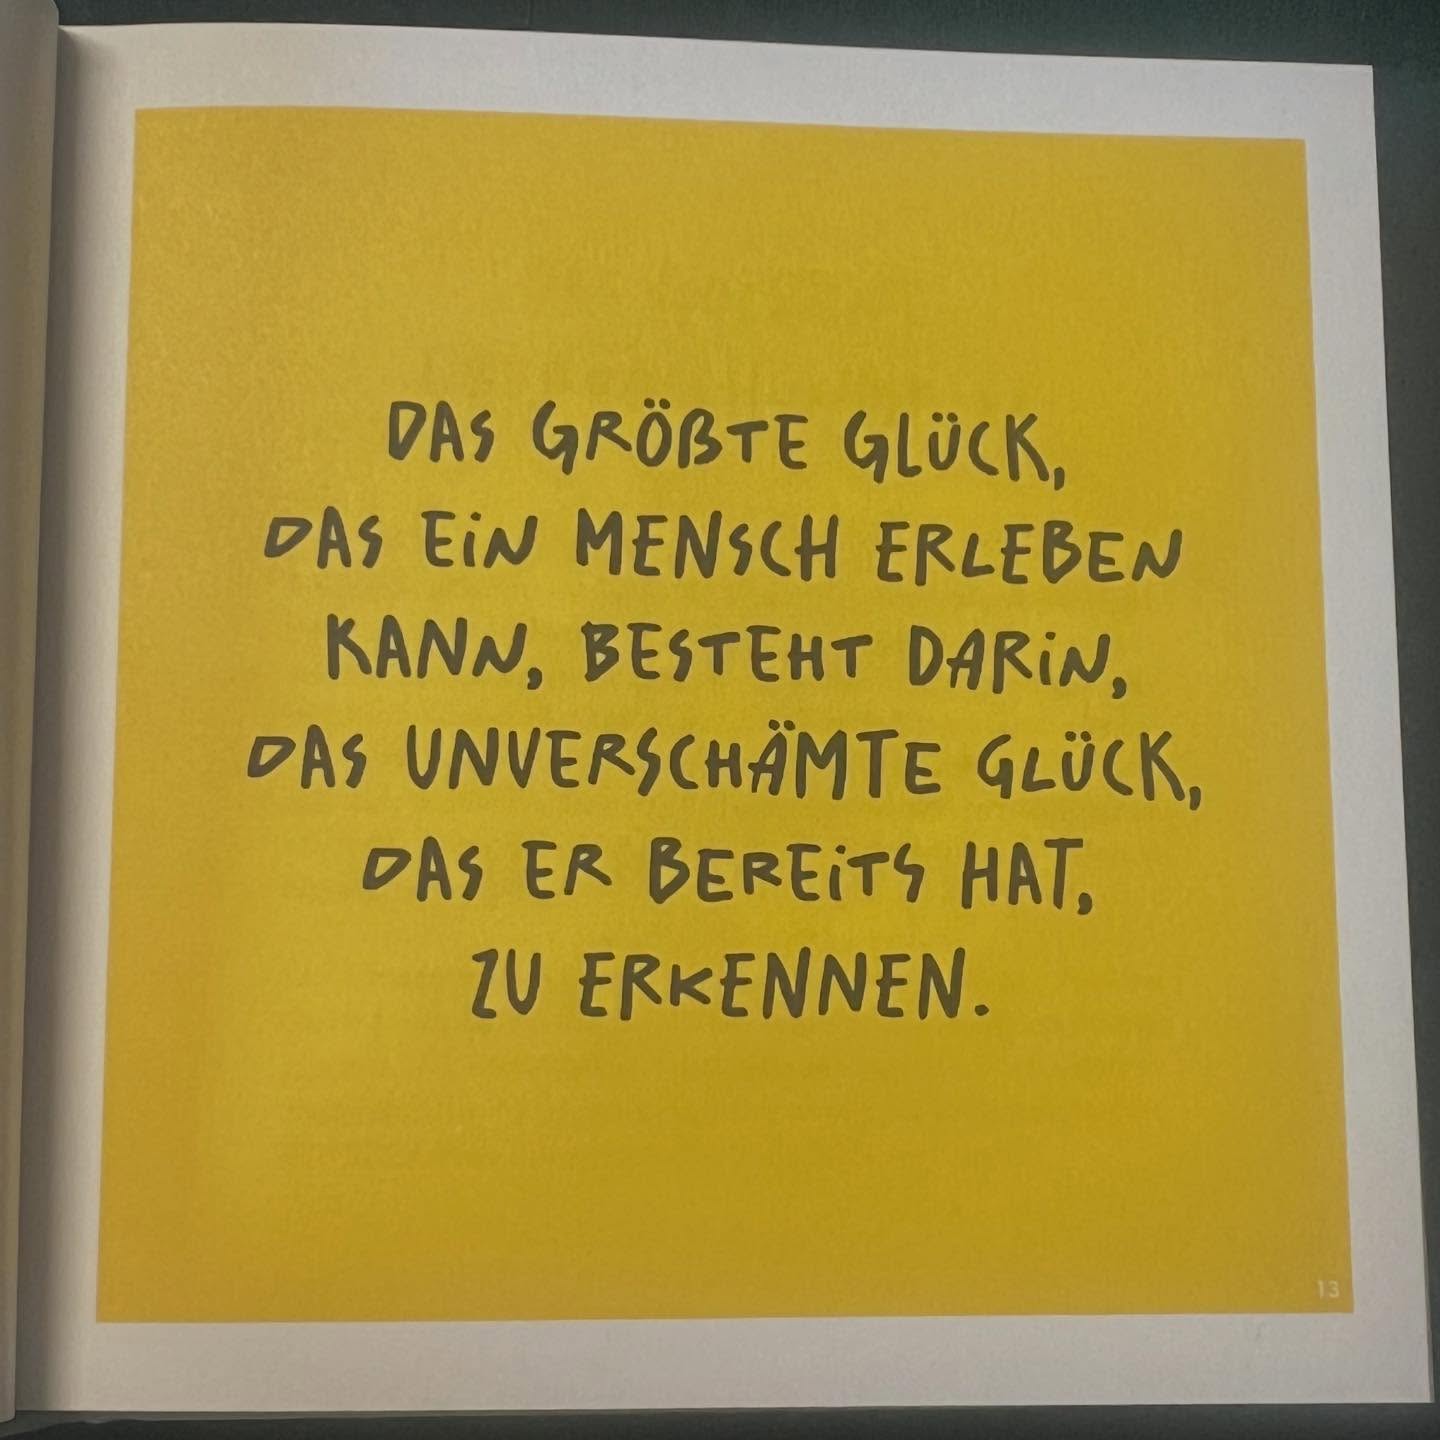 DAS GRÖßTE GLÜCK,
DAS EIN MENSCH ERLEBEN
KANN, BESTEHT DARIN,
DAS UNVERSCHÄMTE GLÜCK,
DAS ER BEREITS HAT,
ZU ERKENNEN.
13